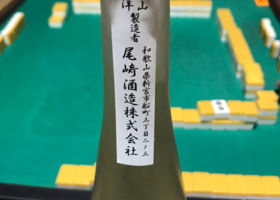 和歌山県新宮市船町三丁目二ノ三
製造者
尾﨑酒造株式会社